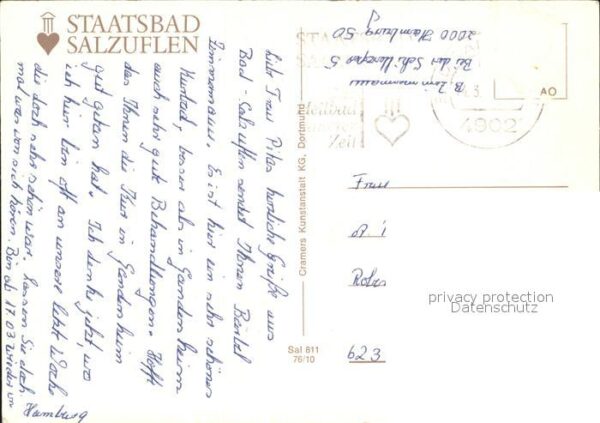 STAATSBAD
SALZUFLEN
Liebe Frau Pika, herzliche Grüße aus
Bad-Salzuflen sendet Ihnen Bärbel
Zimmermann. Es ist hier ein sehr schöner
Kurbad, besser als in Gandersheim
auch sehr gut Behandlungen. Hofft
das Ihnen die Kur in Gandersheim
gut getan hat. Ich denke jetzt, wo
ich hier bin oft an unsere letzt Woche
die doch sehr schön war. Lassen Sie doch
mal was von sich hören. Bin ab 17.03 wieder in
Hamburg
B. Zimmermann
Bei der 5
2000 Hamburg 50
4902
Zeit
AO
Cramers Kunstanstalt KG, Dortmund
Frau
Robe
623
Saf 811
76/10
privacy protection
Datenschutz